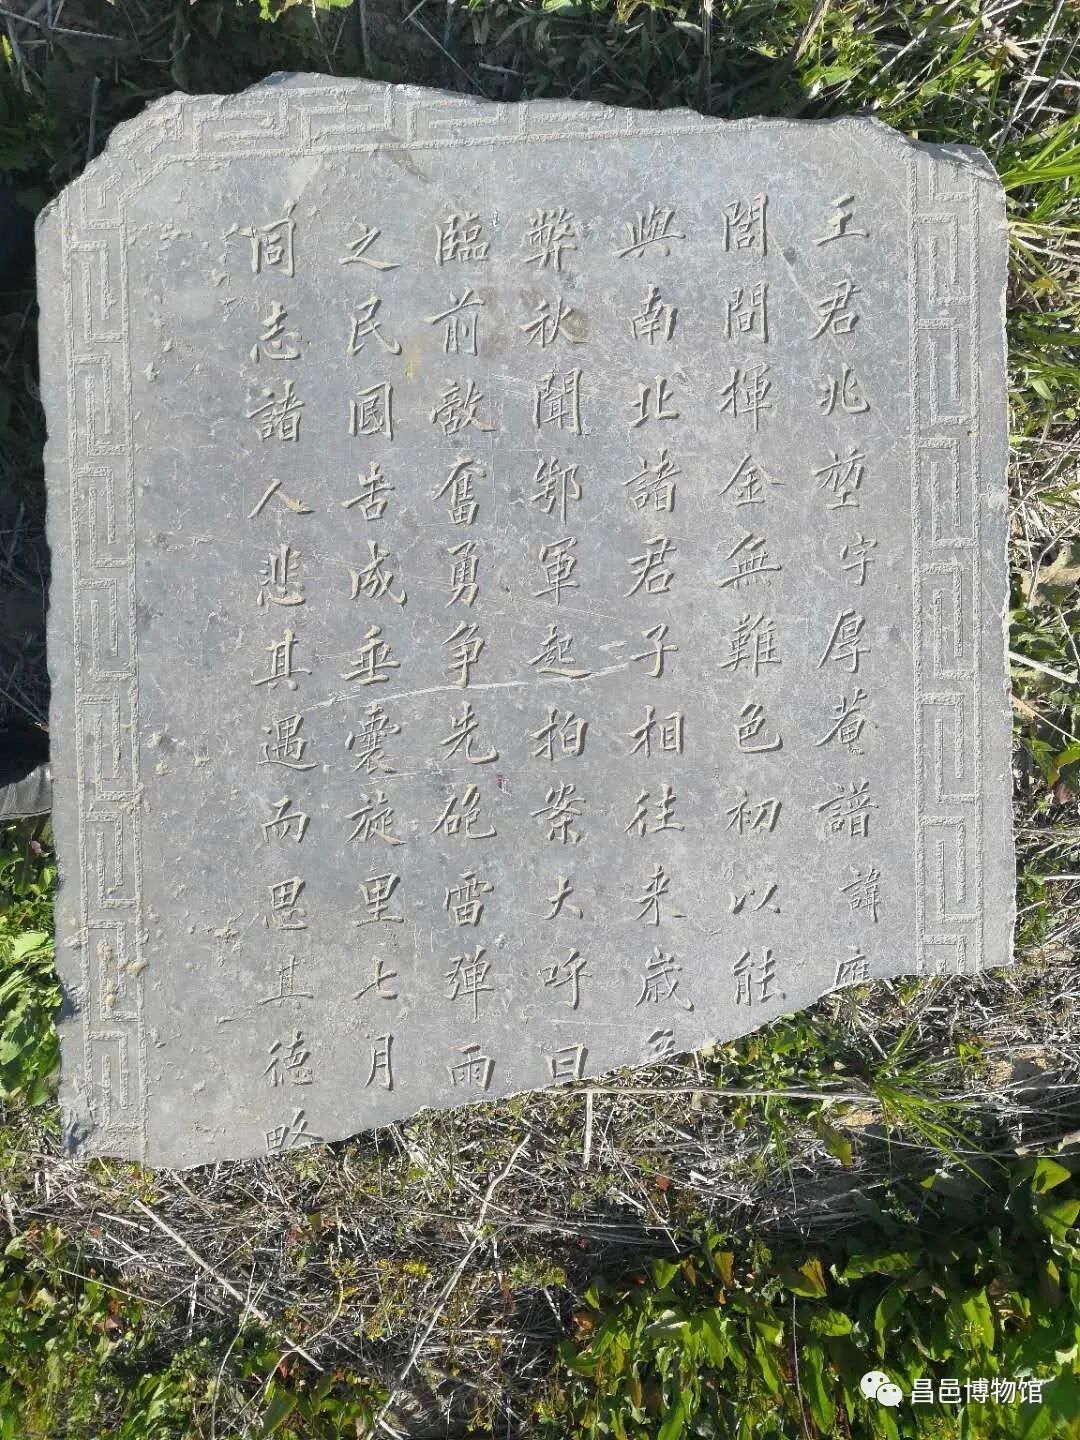 王君兆堃字厚菴譜諱應
閭間揮金無難色初以能
與南北諸君子相往来歲
弊秋聞鄂軍起拍案大呼曰
臨前敵奮勇爭先砲雷彈雨
之民國告成垂囊旋里七月
同志諸人悲其遇而思其德略
昌邑博物馆